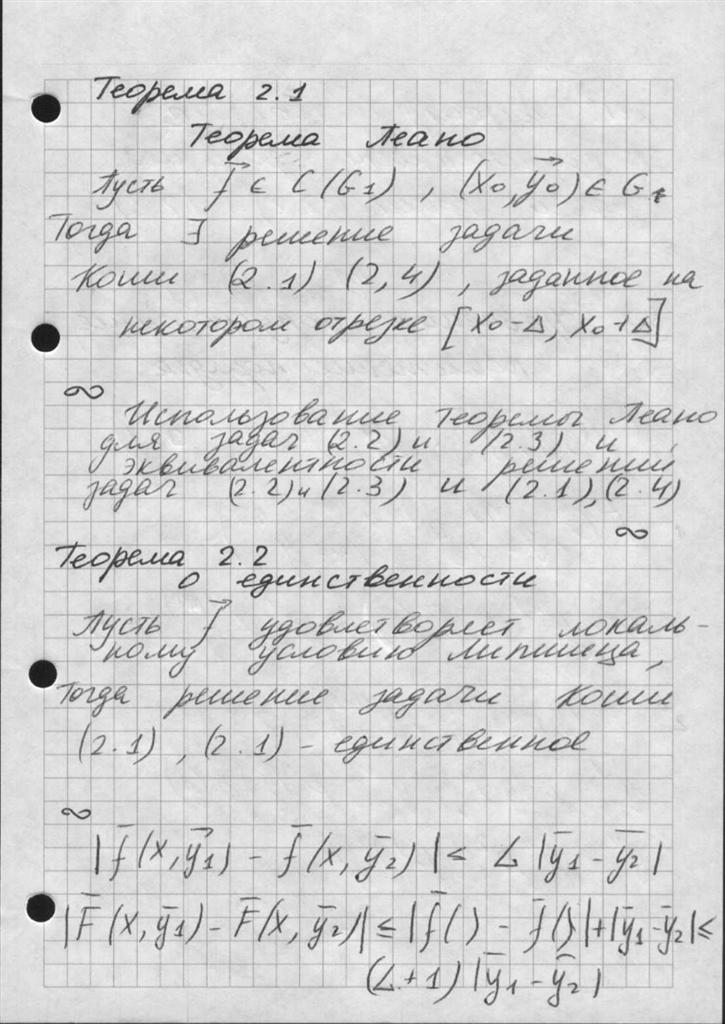 Теорема 2.1
Теорема Пеано
Пусть f⃗ ∈ C(G1), (x0, y⃗0) ∈ G1
Тогда ∃ решение задачи
Коши (2.1) (2,4), заданное на
некотором отрезке [x0-Δ, x0+Δ]
∞
Использование теоремы Пеано
для задач (2.2) и (2.3) и
эквивалентности решении
задач (2.2) и (2.3) и (2.1), (2.4)
∞
Теорема 2.2
о единственности
Пусть f⃗ удовлетворяет локаль-
ному условию Липшица,
Тогда решение задачи Коши
(2.1), (2.1) - единственное
∞
|f̄(x, y⃗1) - f̄(x, ȳ2)| ≤ L |ȳ1 - ȳ2|
|F̄(x, ȳ1) - F̄(x, ȳ2)| ≤ |f̄() - f̄()| + |ȳ1 - ȳ2| ≤
(L+1) |ȳ1 - ȳ2|